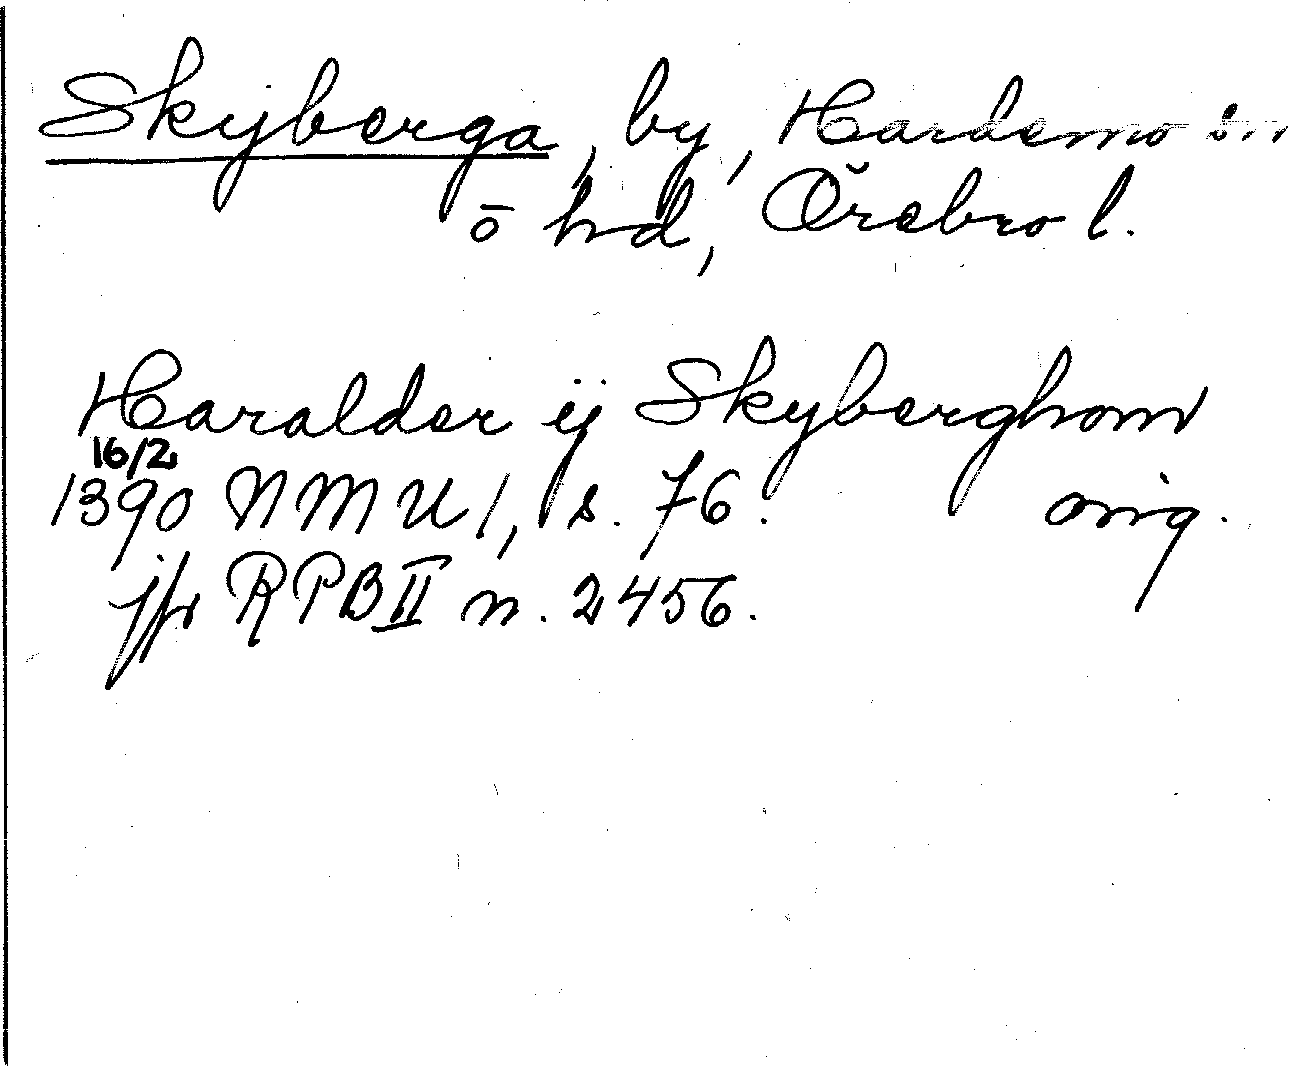 Skyberga, by, Hardemo sn
ö hd, Örebro l.
Haralder ij Skyberghom
16/2
1390 NMU 1, s. 76. orig.
jfr RPB II n. 2456.